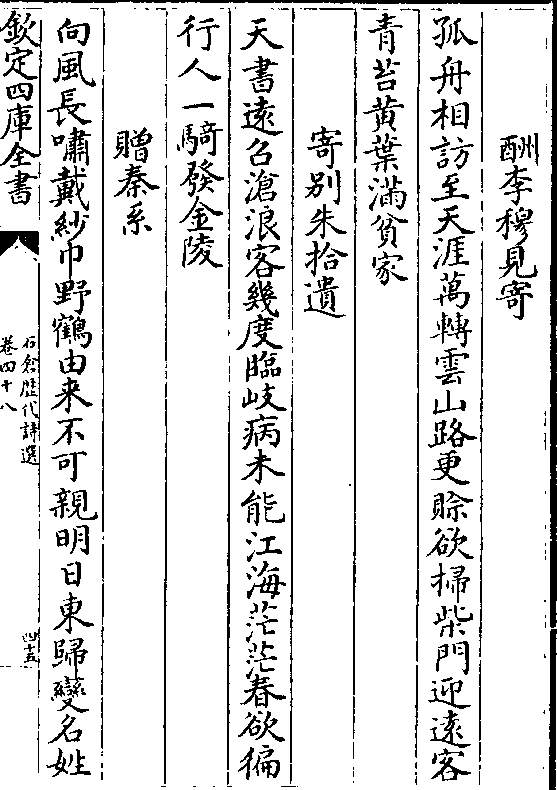 酬李穆見寄
孤舟相訪至天涯萬轉雲山路更賒欲掃柴門迎遠客
青苔黄葉滿貧家
寄别朱拾遺
天書遠召滄浪客幾度臨岐病未能江海茫茫春欲徧
行人一騎發金陵
贈秦系
向風長嘯戴紗巾野鶴由来不可親明日東歸變名姓
欽定四庫全書
石倉歷代詩選
卷四十八
四十五